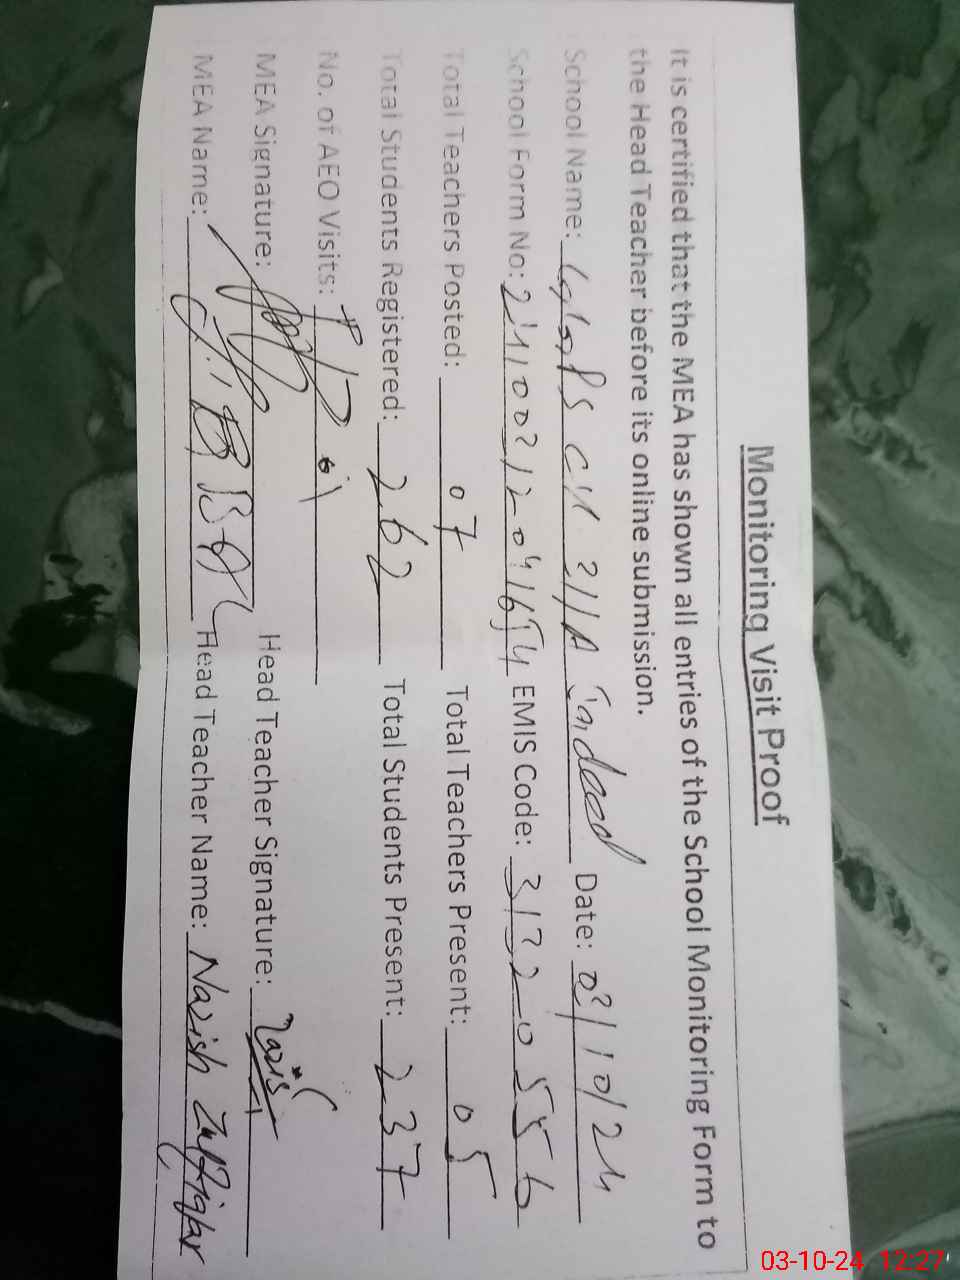 Monitoring Visit Proof
It is certified that the MEA has shown all entries of the School Monitoring Form to
the Head Teacher before its online submission.
School Name: Date: 03/10/24
School Form No: EMIS Code: 31320556
Total Teachers Posted: 07 Total Teachers Present: 05
Total Students Registered: 262 Total Students Present: 237
No. of AEO Visits:
MEA Signature: Head Teacher Signature:
MEA Name: Head Teacher Name: Nazish Zulfiqar
03-10-24 12:27